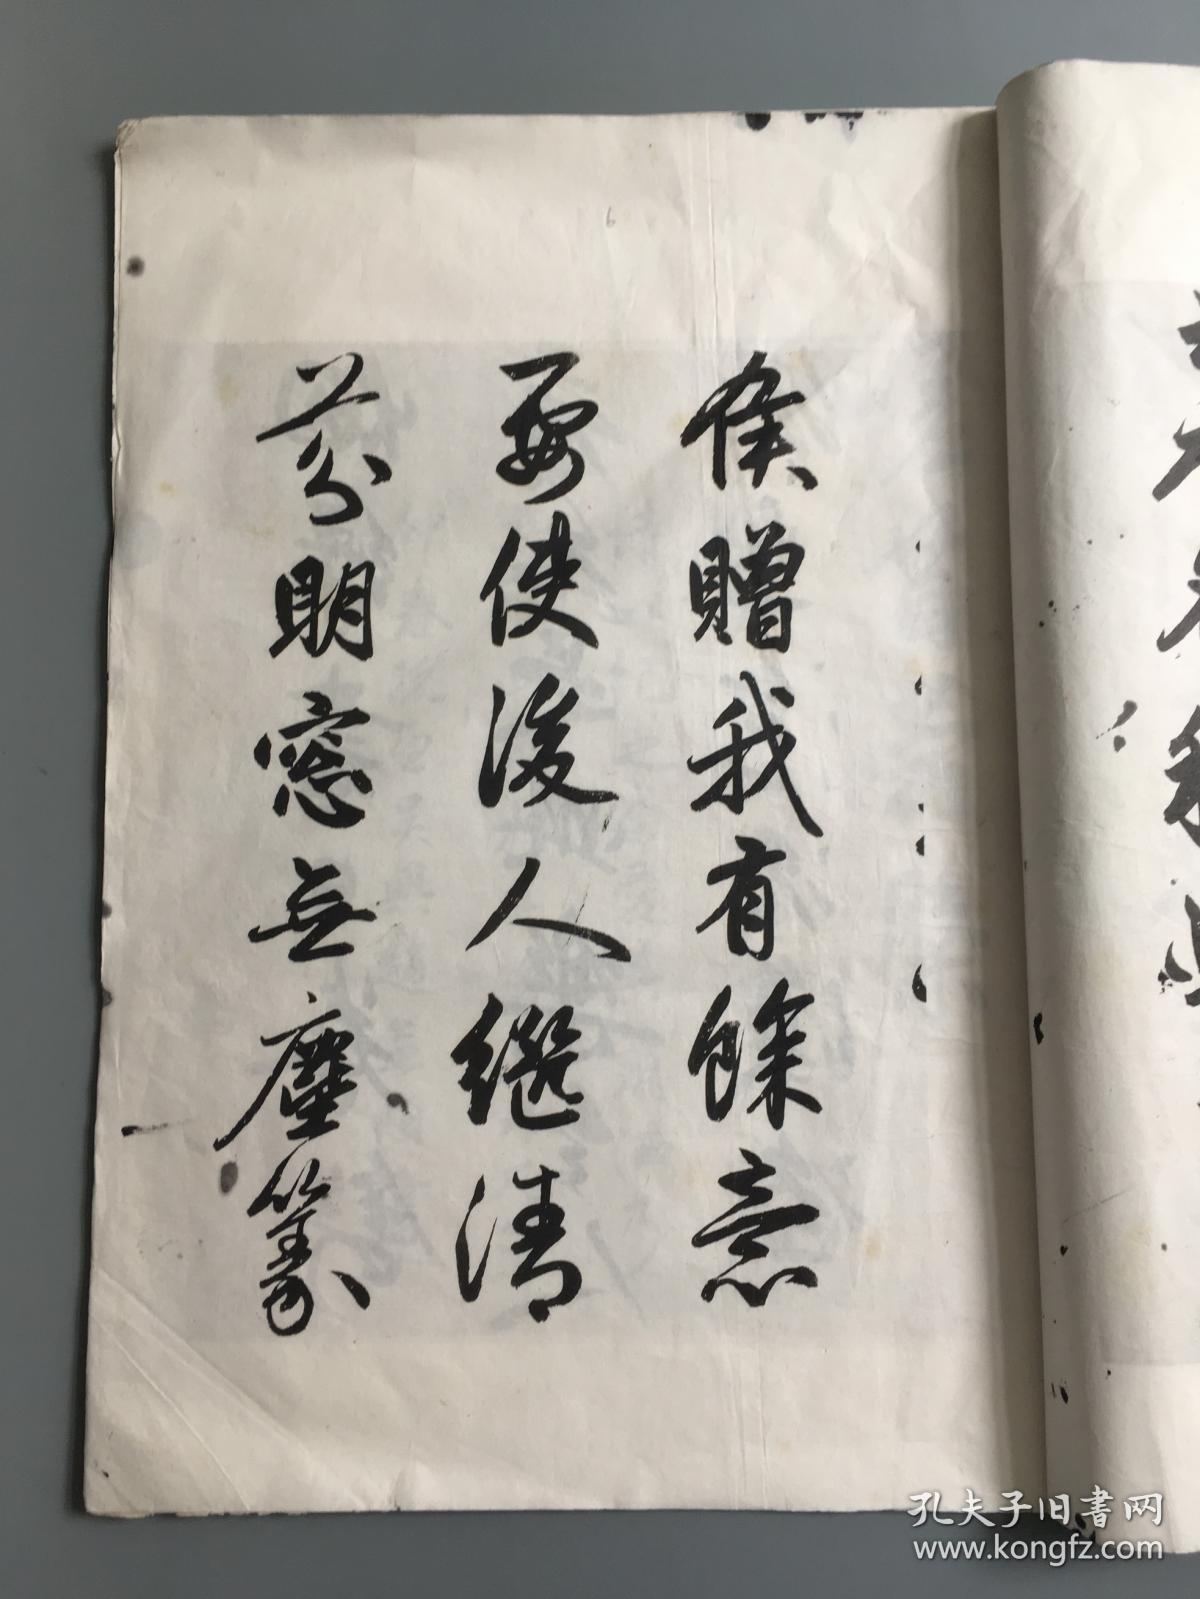 侯贈我有餘意
要使後人繼清
芬明窓無塵篆
孔夫子旧書网
www.kongfz.com